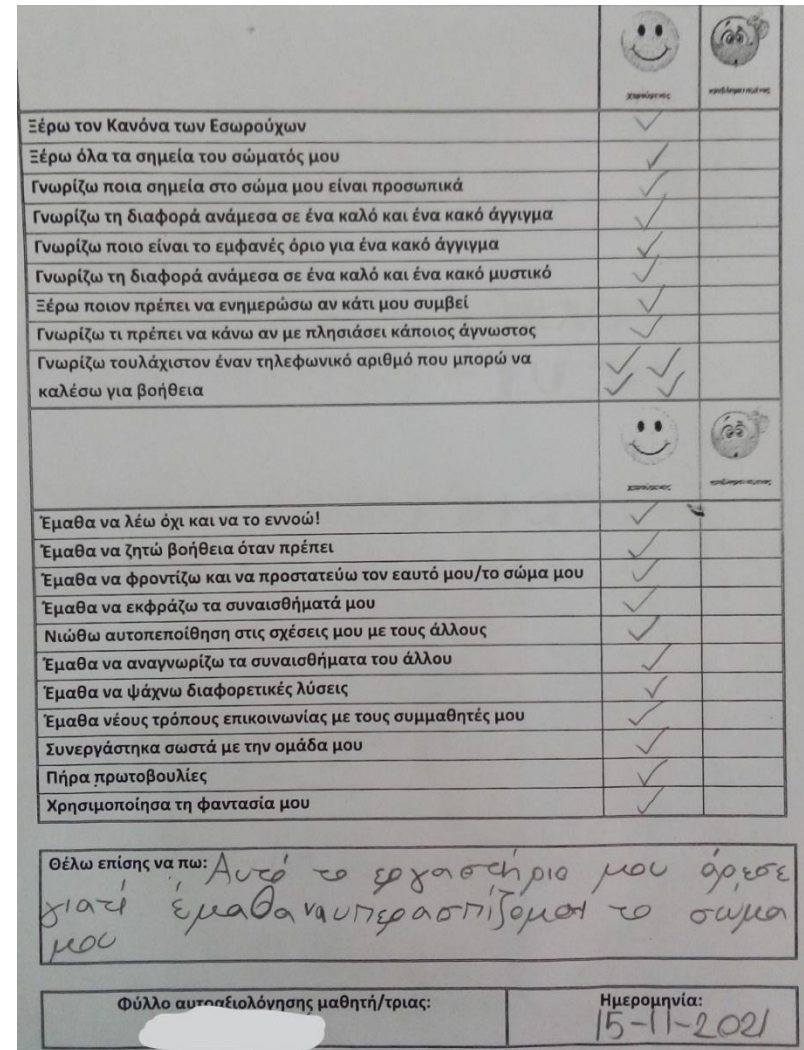 χαρούμενος προβληματισμένος
Ξέρω τον Κανόνα των Εσωρούχων ✓
Ξέρω όλα τα σημεία του σώματός μου ✓
Γνωρίζω ποια σημεία στο σώμα μου είναι προσωπικά ✓
Γνωρίζω τη διαφορά ανάμεσα σε ένα καλό και ένα κακό άγγιγμα ✓
Γνωρίζω ποιο είναι το εμφανές όριο για ένα κακό άγγιγμα ✓
Γνωρίζω τη διαφορά ανάμεσα σε ένα καλό και ένα κακό μυστικό ✓
Ξέρω ποιον πρέπει να ενημερώσω αν κάτι μου συμβεί ✓
Γνωρίζω τι πρέπει να κάνω αν με πλησιάσει κάποιος άγνωστος ✓
Γνωρίζω τουλάχιστον έναν τηλεφωνικό αριθμό που μπορώ να ✓ ✓
καλέσω για βοήθεια ✓ ✓
χαρούμενος προβληματισμένος
Έμαθα να λέω όχι και να το εννοώ! ✓
Έμαθα να ζητώ βοήθεια όταν πρέπει ✓
Έμαθα να φροντίζω και να προστατεύω τον εαυτό μου/το σώμα μου ✓
Έμαθα να εκφράζω τα συναισθήματά μου ✓
Νιώθω αυτοπεποίθηση στις σχέσεις μου με τους άλλους ✓
Έμαθα να αναγνωρίζω τα συναισθήματα του άλλου ✓
Έμαθα να ψάχνω διαφορετικές λύσεις ✓
Έμαθα νέους τρόπους επικοινωνίας με τους συμμαθητές μου ✓
Συνεργάστηκα σωστά με την ομάδα μου ✓
Πήρα πρωτοβουλίες ✓
Χρησιμοποίησα τη φαντασία μου ✓
Θέλω επίσης να πω: Αυτό το εργαστήριο μου άρεσε
γιατί έμαθα να υπερασπίζομαι το σώμα
μου
Φύλλο αυτοαξιολόγησης μαθητή/τριας: Ημερομηνία:
15-11-2021